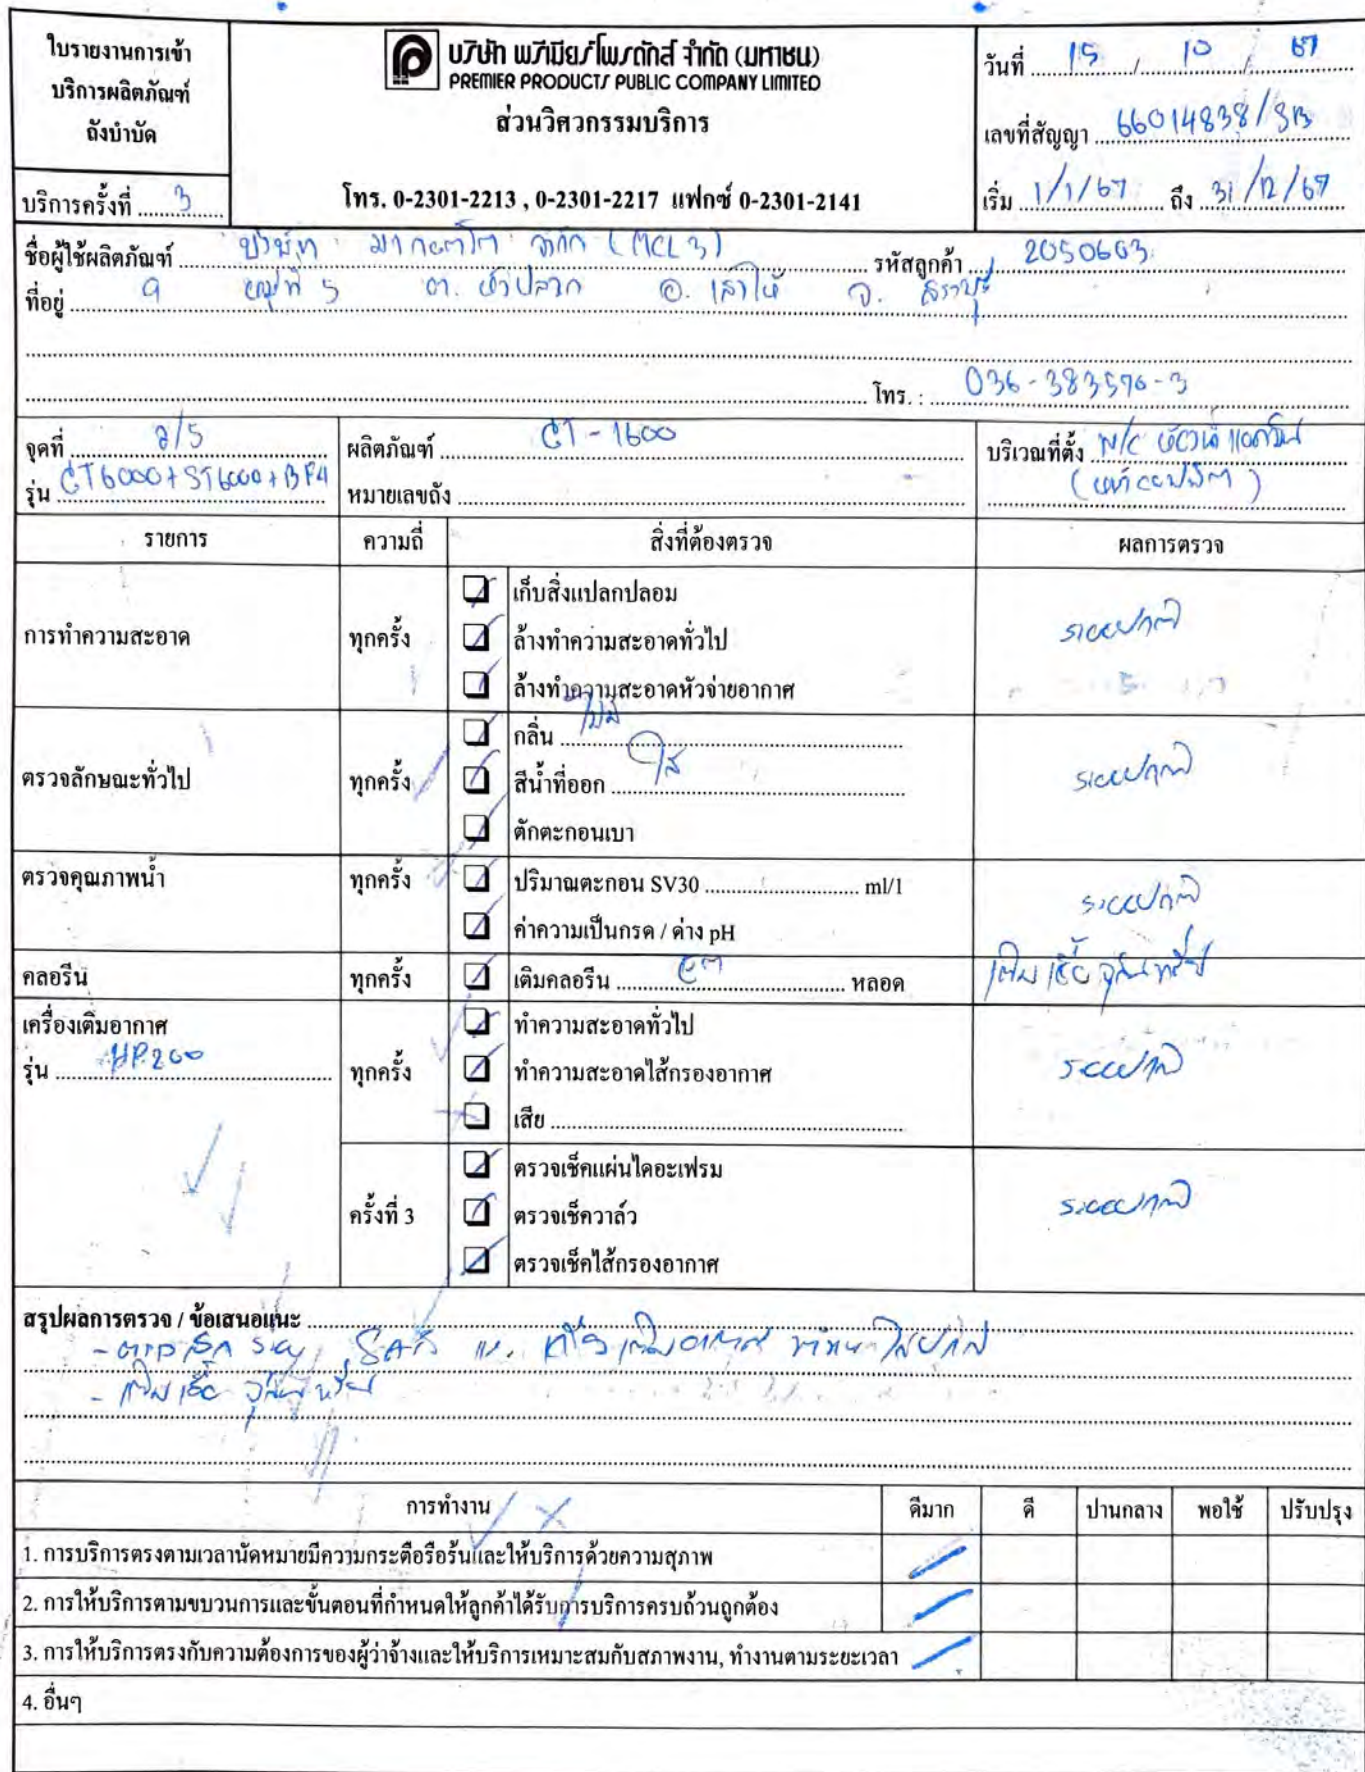 ใบรายงานการเข้า
บริการผลิตภัณฑ์
ถังบำบัด
บริการครั้งที่ 3
บริษัท พรีเมียร์โพรดักส์ จำกัด (มหาชน)
PREMIER PRODUCTS PUBLIC COMPANY LIMITED
ส่วนวิศวกรรมบริการ
โทร. 0-2301-2213 , 0-2301-2217 แฟกซ์ 0-2301-2141
วันที่ 15 / 10 / 67
เลขที่สัญญา 66014838/SB
เริ่ม 1/1/67 ถึง 31/12/67
ชื่อผู้ใช้ผลิตภัณฑ์ บริษัท มากอตโต จำกัด (MCL3) รหัสลูกค้า 2050663
ที่อยู่ 9 หมู่ที่ 5 ต. หัวปลวก อ. เสาไห้ จ. สระบุรี
โทร. : 036-383576-3
จุดที่ 2/5
รุ่น CT6000+ST6000+BF4
ผลิตภัณฑ์ CT-1600
หมายเลขถัง
บริเวณที่ตั้ง
รายการ ความถี่ สิ่งที่ต้องตรวจ ผลการตรวจ
การทำความสะอาด ทุกครั้ง
เก็บสิ่งแปลกปลอม
ล้างทำความสะอาดทั่วไป
ล้างทำความสะอาดหัวจ่ายอากาศ
ระบบปกติ
ตรวจลักษณะทั่วไป ทุกครั้ง
กลิ่น ไม่มี
สีน้ำที่ออก ใส
ตักตะกอนเบา
ระบบปกติ
ตรวจคุณภาพน้ำ ทุกครั้ง
ปริมาณตะกอน SV30 ml/1
ค่าความเป็นกรด / ด่าง pH
ระบบปกติ
คลอรีน ทุกครั้ง เติมคลอรีน หลอด เติมเชื้อจุลินทรีย์
เครื่องเติมอากาศ
รุ่น HP.200
ทุกครั้ง
ทำความสะอาดทั่วไป
ทำความสะอาดไส้กรองอากาศ
เสีย
ระบบปกติ
ครั้งที่ 3
ตรวจเช็คแผ่นไดอะเฟรม
ตรวจเช็ควาล์ว
ตรวจเช็คไส้กรองอากาศ
ระบบปกติ
สรุปผลการตรวจ / ข้อเสนอแนะ
- ตรวจเช็ค เติมอากาศ ปกติ
- เติมเชื้อ จุลินทรีย์
การทำงาน ดีมาก ดี ปานกลาง พอใช้ ปรับปรุง
1. การบริการตรงตามเวลานัดหมายมีความกระตือรือร้นและให้บริการด้วยความสุภาพ
2. การให้บริการตามขบวนการและขั้นตอนที่กำหนดให้ลูกค้าได้รับการบริการครบถ้วนถูกต้อง
3. การให้บริการตรงกับความต้องการของผู้ว่าจ้างและให้บริการเหมาะสมกับสภาพงาน, ทำงานตามระยะเวลา
4. อื่นๆ